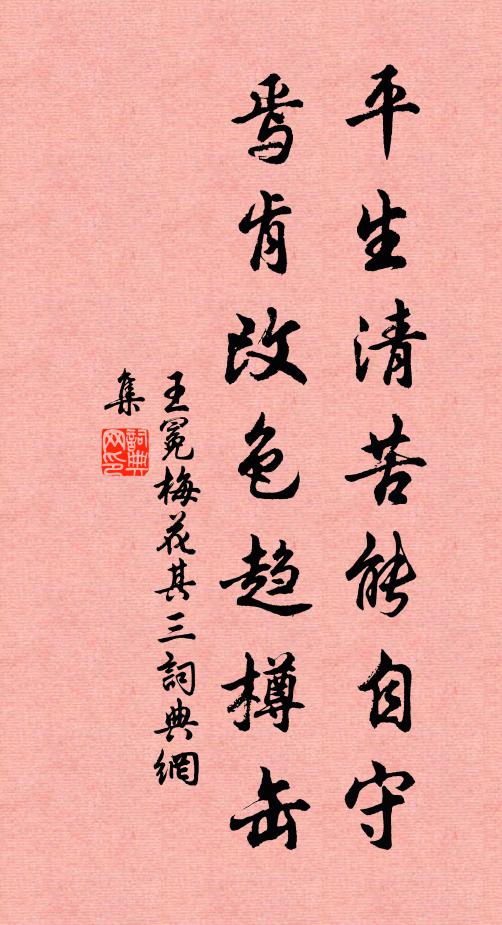 平生清苦能自守
焉肯改色趋樽缶
王冕梅花其三詞典網
集
詞典
网印